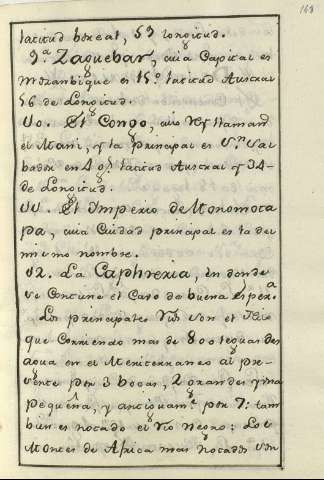 168
latitud boreal, 59 longitud.
9.ª Zaguebar, cuia Capital es
Mozambique en 15.º latitud Austral
56 de Longitud.
10. El Congo, cuio Rey llaman
el Mani, y la principal es S.n Sal
bador en 4 g.s latitud Austral y 34-
de Longitud.
11. El Imperio de Monomota
pa, cuia Ciudad principal es la del
mismo nombre.
12. La Caphreria, en donde
se contiene el Cavo de buena esper.a
Los principales rios son el Nilo
que corriendo mas de 800 leguas des
agua en el Mediterraneo al pre-
sente por 3 bocas, 2 grandes y una
pequeña, y antiguam.te por 7: tam
bien es notado el rio negro: Los
Montes de Africa mas notados son